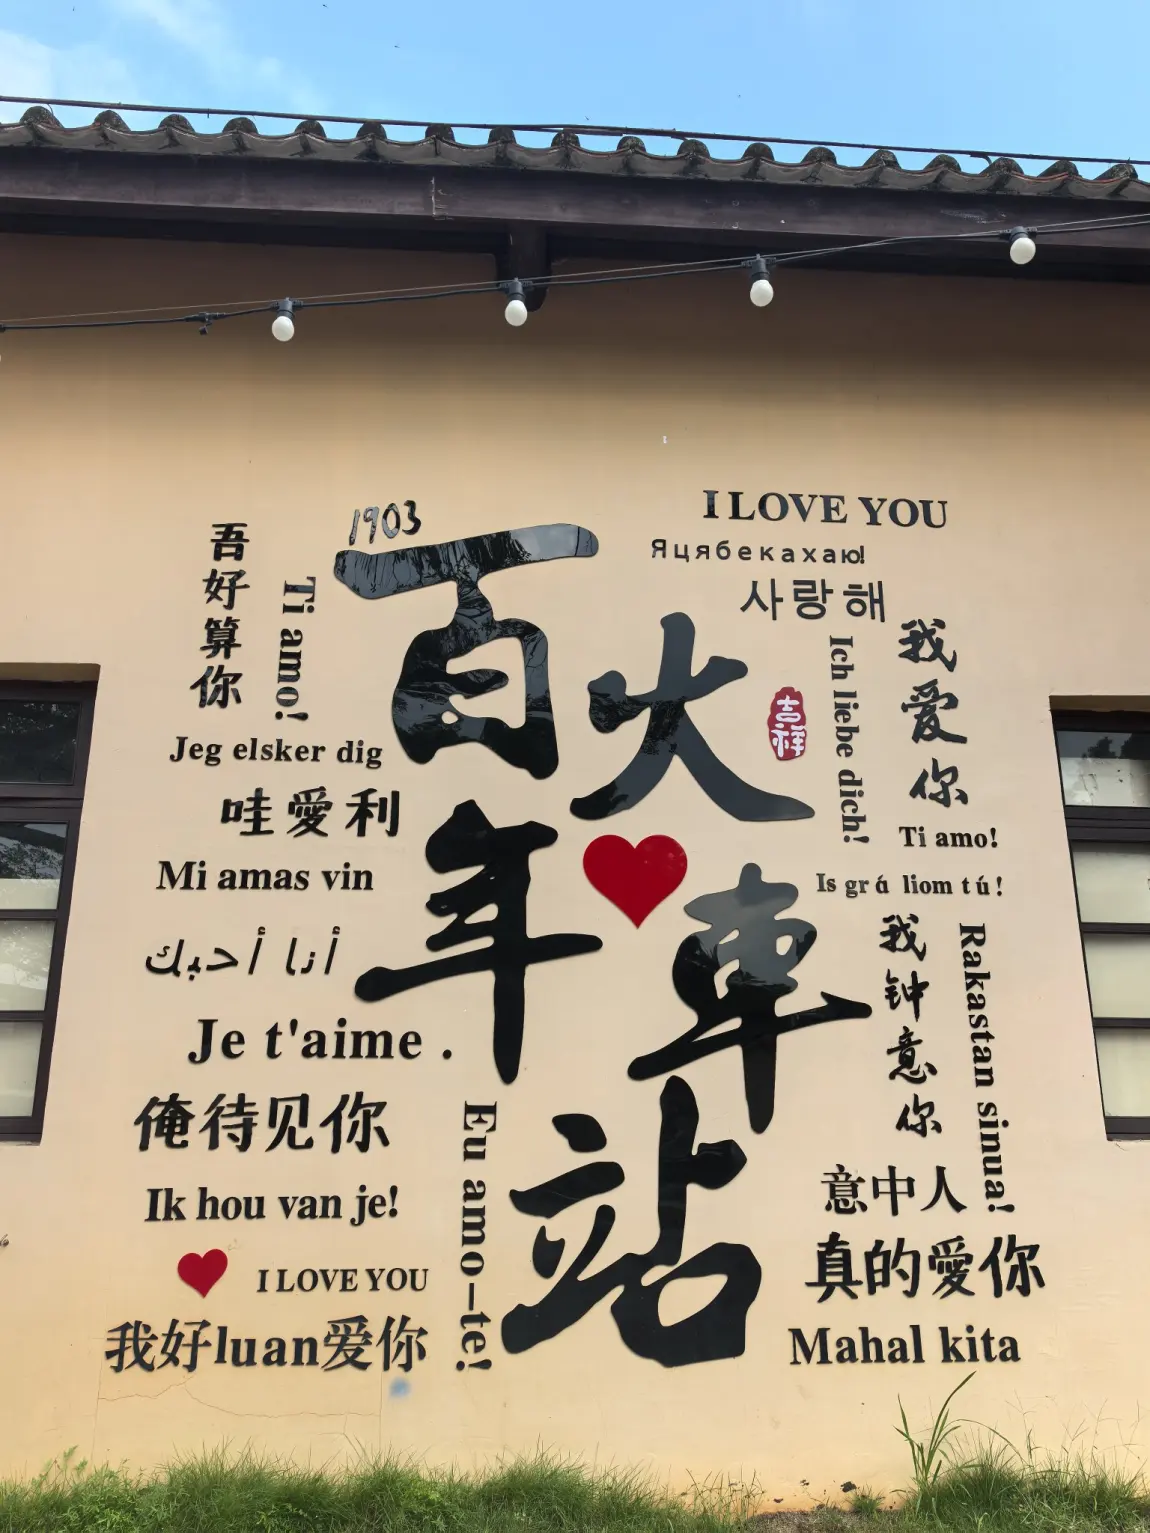 1903
百年
火車站
吉祥
吾好算你
Ti amo!
Jeg elsker dig
哇愛利
Mi amas vin
أنا أحبك
Je t'aime .
俺待见你
Ik hou van je!
I LOVE YOU
我好luan爱你
Eu amo-te!
I LOVE YOU
Яцябекахаю!
사랑해
Ich liebe dich!
我爱你
Ti amo!
Is grá liom tú!
我钟意你
Rakastan sinua!
意中人
真的愛你
Mahal kita